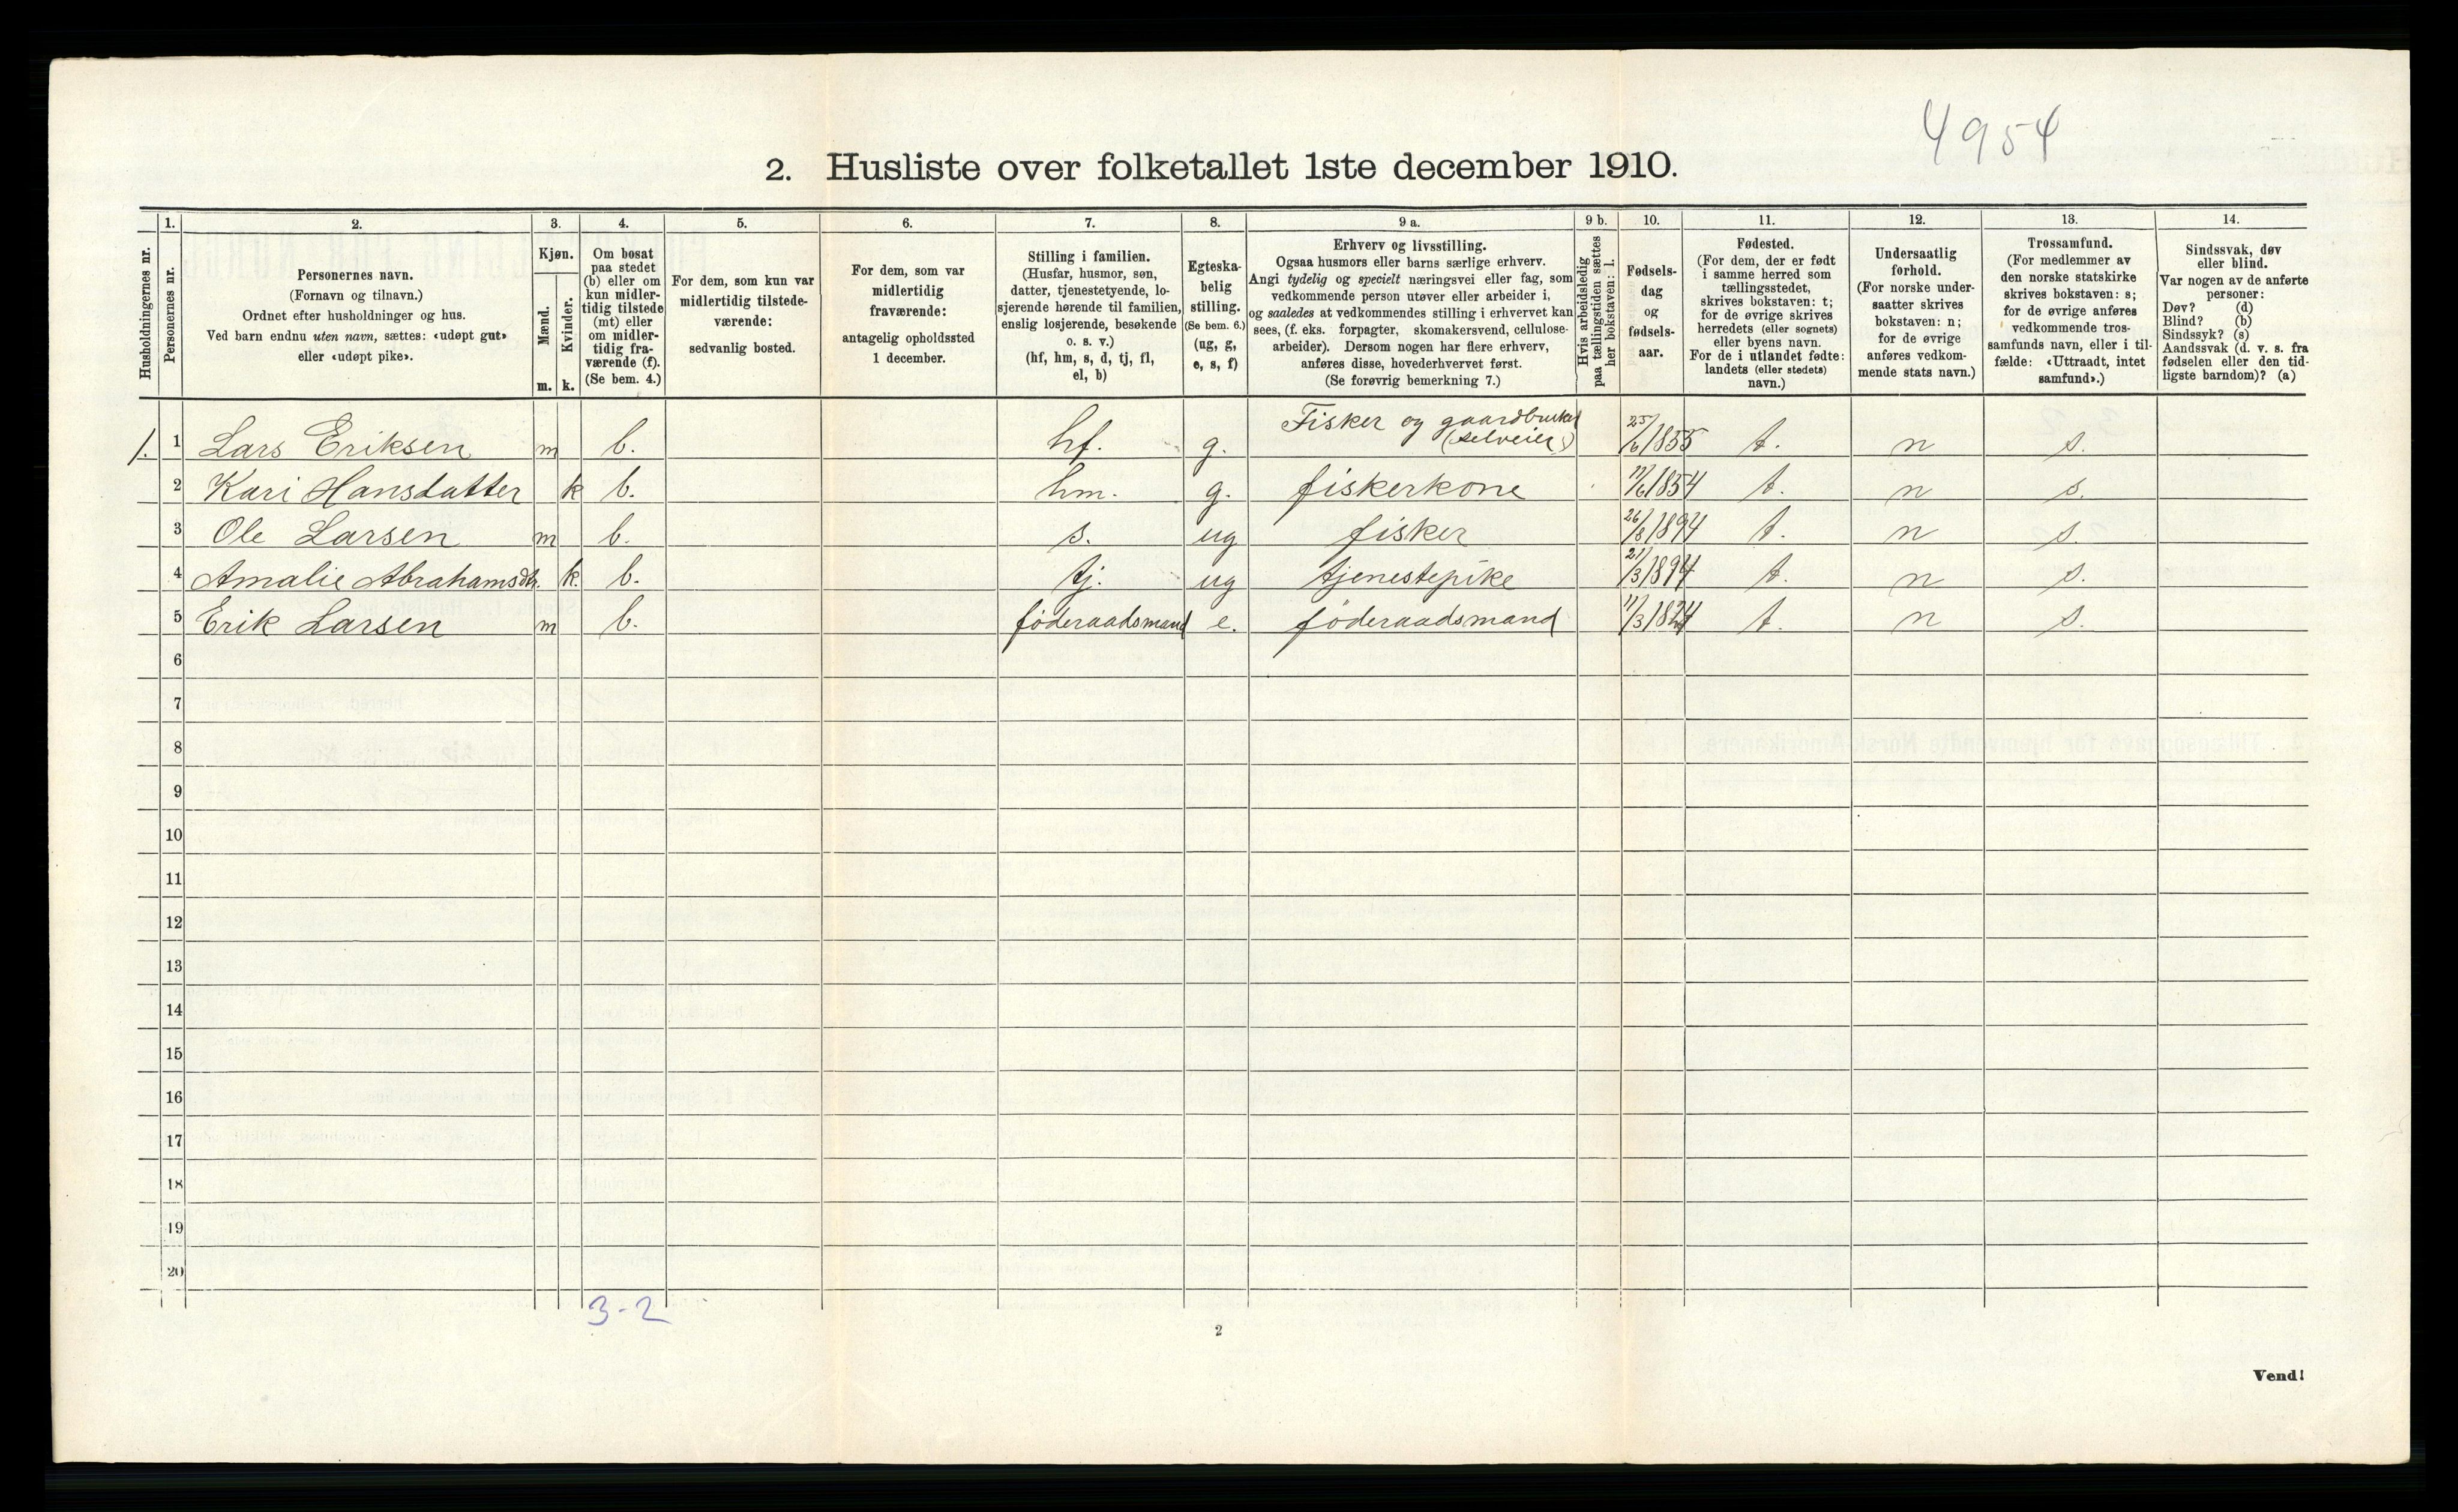 4954
2. Husliste over folketallet 1ste december 1910.
Husholdningernes nr.
1.
Personernes nr.
2.
Personernes navn.
(Fornavn og tilnavn.)
Ordnet efter husholdninger og hus.
Ved barn endnu uten navn, sættes: «udøpt gut»
eller «udøpt pike».
3.
Kjøn.
Mænd.
Kvinder.
m. k.
4.
Om bosat
paa stedet
(b) eller om
kun midler-
tidig tilstede
(mt) eller
om midler-
tidig fra-
værende (f).
(Se bem. 4.)
5.
For dem, som kun var
midlertidig tilstede-
værende:
sedvanlig bosted.
6.
For dem, som var
midlertidig
fraværende:
antagelig opholdssted
1 december.
7.
Stilling i familien.
(Husfar, husmor, søn,
datter, tjenestetyende, lo-
sjerende hørende til familien,
enslig losjerende, besøkende
o. s. v.)
(hf, hm, s, d, tj, fl,
el, b)
8.
Egteska-
belig
stilling.
(Se bem. 6.)
(ug, g,
e, s, f)
9 a.
Erhverv og livsstilling.
Ogsaa husmors eller barns særlige erhverv.
Angi tydelig og specielt næringsvei eller fag, som
vedkommende person utøver eller arbeider i,
og saaledes at vedkommendes stilling i erhvervet kan
sees, (f. eks. forpagter, skomakersvend, cellulose-
arbeider). Dersom nogen har flere erhverv,
anføres disse, hovederhvervet først.
(Se forøvrig bemerkning 7.)
9 b.
Hvis arbeidsledig
paa tællingstiden sættes
her bokstaven: l.
10.
Fødsels-
dag
og
fødsels-
aar.
11.
Fødested.
(For dem, der er født
i samme herred som
tællingsstedet,
skrives bokstaven: t;
for de øvrige skrives
herredets (eller sognets)
eller byens navn.
For de i utlandet fødte:
landets (eller stedets)
navn.)
12.
Undersaatlig
forhold.
(For norske under-
saatter skrives
bokstaven: n;
for de øvrige
anføres vedkom-
mende stats navn.)
13.
Trossamfund.
(For medlemmer av
den norske statskirke
skrives bokstaven: s;
for de øvrige anføres
vedkommende tros-
samfunds navn, eller i til-
fælde: «Uttraadt, intet
samfund».)
14.
Sindssvak, døv
eller blind.
Var nogen av de anførte
personer:
Døv? (d)
Blind? (b)
Sindssyk? (s)
Aandssvak (d. v. s. fra
fødselen eller den tid-
ligste barndom)? (a)
1. 1 Lars Eriksen m b. hf. g. Fisker og gaardbruker (selveier) 25/6 1855 t. n s.
2 Kari Hansdatter k b. hm. g. fiskerkone 11/6 1854 t. n s.
3 Ole Larsen m b. s. ug fisker 26/8 1894 t. n s.
4 Amalie Abrahamsdtr. k. b. tj. ug tjenestepike 21/3 1894 t. n s.
5 Erik Larsen m b. føderaadsmand e. føderaadsmand 11/3 1824 t. n s.
6
7
8
9
10
11
12
13
14
15
16
17
18
19
20
3-2
2
Vend!